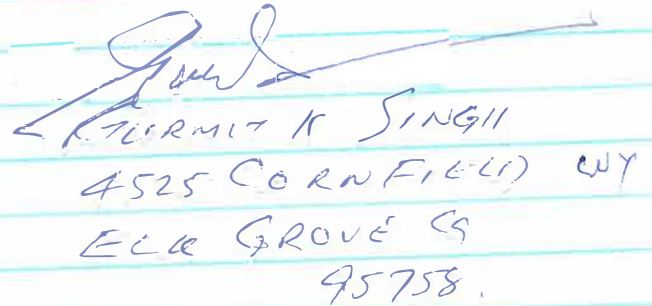 GURMIT K SINGH
4525 CORNFIELD WY
ELK GROVE CA
95758.